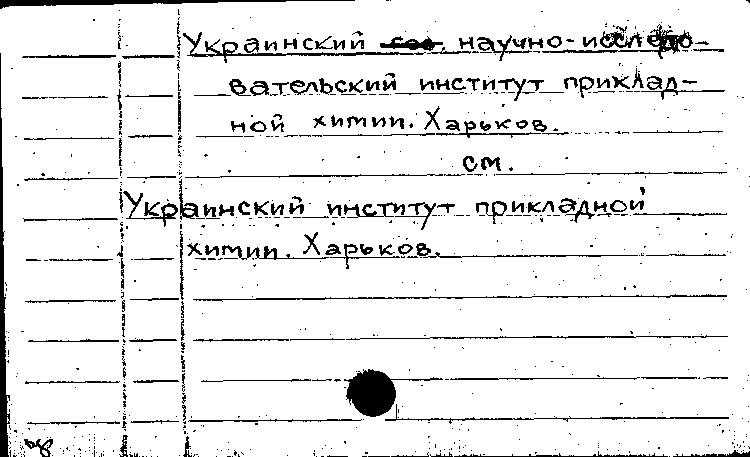 Украинский научно-исследо-
вательский институт приклад-
ной химии. Харьков.
см.
Украинский институт прикладной
химии. Харьков.